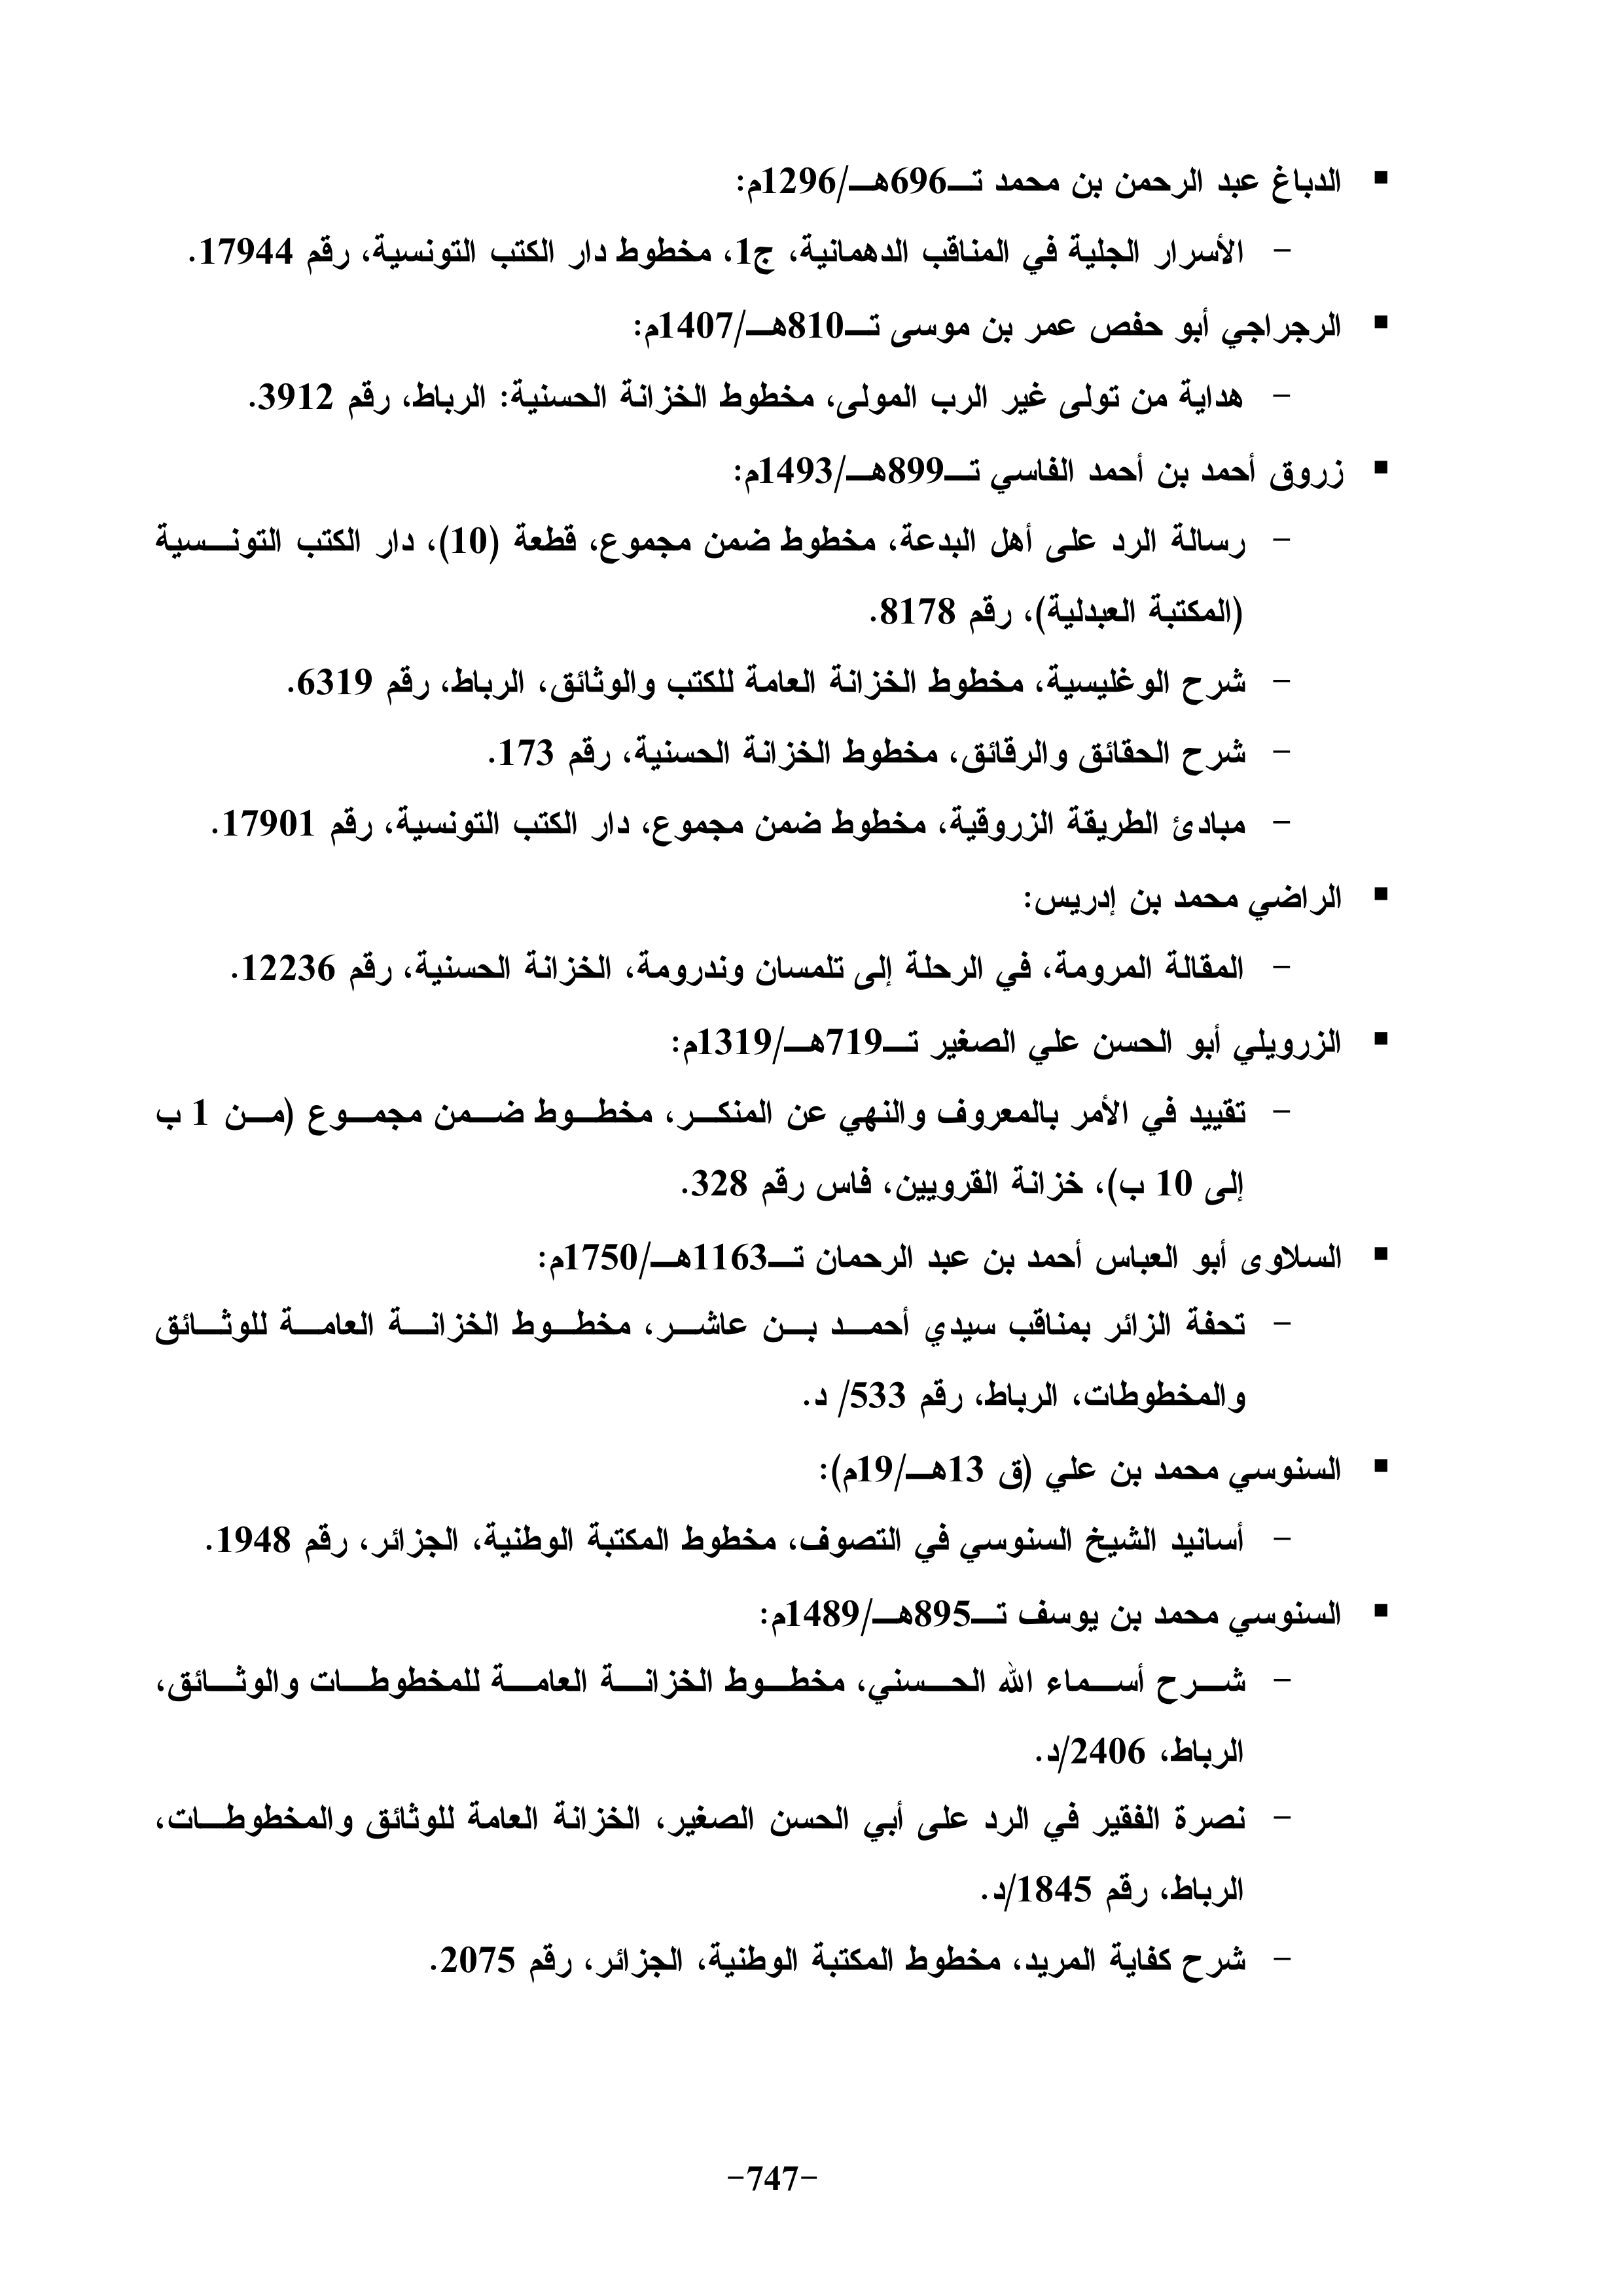 ▪ الدباغ عبد الرحمن بن محمد تـ696هـ/1296م:
- الأسرار الجلية في المناقب الدهمانية، ج1، مخطوط دار الكتب التونسية، رقم 17944.
▪ الرجراجي أبو حفص عمر بن موسى تـ810هـ/1407م:
- هداية من تولى غير الرب المولى، مخطوط الخزانة الحسنية: الرباط، رقم 3912.
▪ زروق أحمد بن أحمد الفاسي تـ899هـ/1493م:
- رسالة الرد على أهل البدعة، مخطوط ضمن مجموع، قطعة (10)، دار الكتب التونسية
(المكتبة العبدلية)، رقم 8178.
- شرح الوغليسية، مخطوط الخزانة العامة للكتب والوثائق، الرباط، رقم 6319.
- شرح الحقائق والرقائق، مخطوط الخزانة الحسنية، رقم 173.
- مبادئ الطريقة الزروقية، مخطوط ضمن مجموع، دار الكتب التونسية، رقم 17901.
▪ الراضي محمد بن إدريس:
- المقالة المرومة، في الرحلة إلى تلمسان وندرومة، الخزانة الحسنية، رقم 12236.
▪ الزرويلي أبو الحسن علي الصغير تـ719هـ/1319م:
- تقييد في الأمر بالمعروف والنهي عن المنكر، مخطوط ضمن مجموع (من 1 ب
إلى 10 ب)، خزانة القرويين، فاس رقم 328.
▪ السلاوى أبو العباس أحمد بن عبد الرحمان تـ1163هـ/1750م:
- تحفة الزائر بمناقب سيدي أحمد بن عاشر، مخطوط الخزانة العامة للوثائق
والمخطوطات، الرباط، رقم 533/ د.
▪ السنوسي محمد بن علي (ق 13هـ/19م):
- أسانيد الشيخ السنوسي في التصوف، مخطوط المكتبة الوطنية، الجزائر، رقم 1948.
▪ السنوسي محمد بن يوسف تـ895هـ/1489م:
- شرح أسماء الله الحسني، مخطوط الخزانة العامة للمخطوطات والوثائق،
الرباط، 2406/د.
- نصرة الفقير في الرد على أبي الحسن الصغير، الخزانة العامة للوثائق والمخطوطات،
الرباط، رقم 1845/د.
- شرح كفاية المريد، مخطوط المكتبة الوطنية، الجزائر، رقم 2075.
-747-